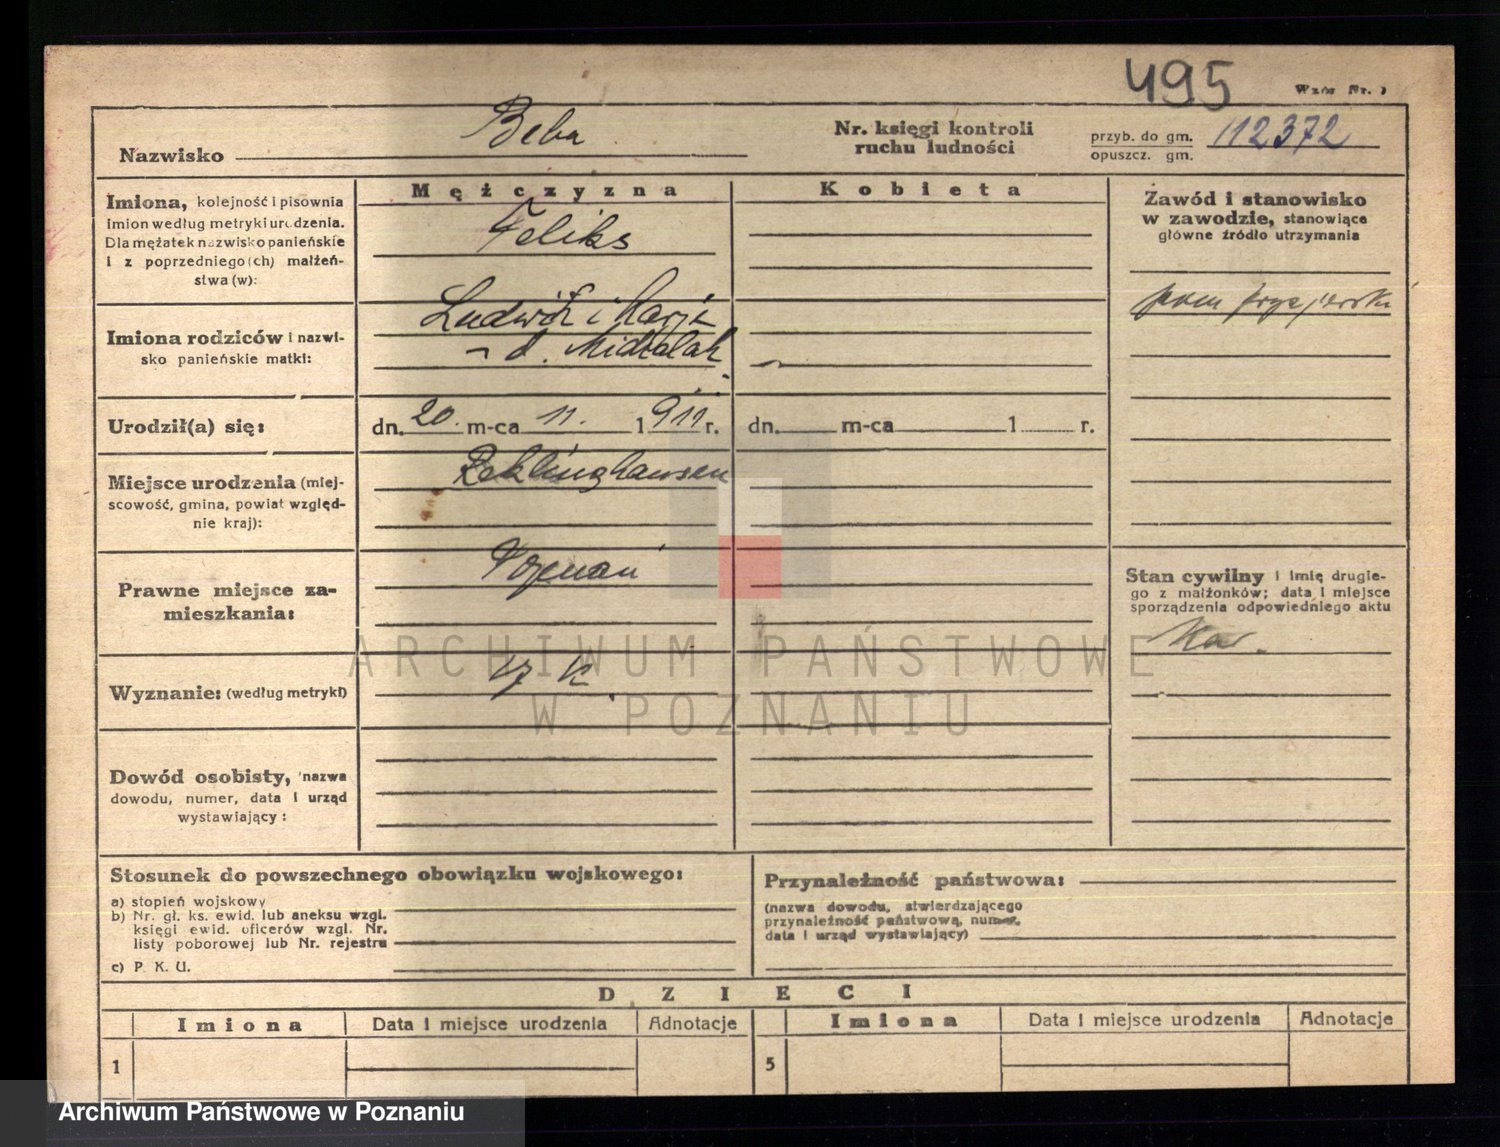 495
Wzór Nr. 1
Nazwisko Beba
Nr. księgi kontroli
ruchu ludności
przyb. do gm.
opuszcz. gm.
112372
Mężczyzna
Kobieta
Imiona, kolejność i pisownia
imion według metryki urodzenia.
Dla mężatek nazwisko panieńskie
i z poprzedniego(ch) małżeń-
stwa (w):
Feliks
Zawód i stanowisko
w zawodzie, stanowiące
główne źródło utrzymania
pom fryzjerski
Imiona rodziców i nazwi-
sko panieńskie matki:
Ludwik i Marja
d.
Urodził(a) się:
dn. 20. m-ca 11. 1911 r.
dn. m-ca 1 r.
Miejsce urodzenia (miej-
scowość, gmina, powiat względ-
nie kraj):
Reklinghausen
Prawne miejsce za-
mieszkania:
Poznań
Stan cywilny i imię drugie-
go z małżonków; data i miejsce
sporządzenia odpowiedniego aktu
Kaw.
Wyznanie: (według metryki)
ARCHIWUM PAŃSTWOWE
W POZNANIU
Dowód osobisty, nazwa
dowodu, numer, data i urząd
wystawiający:
Stosunek do powszechnego obowiązku wojskowego:
a) stopień wojskowy
b) Nr. gł. ks. ewid. lub aneksu wzgl.
księgi ewid. oficerów wzgl. Nr.
listy poborowej lub Nr. rejestru
c) P. K. U.
Przynależność państwowa:
(nazwa dowodu, stwierdzającego
przynależność państwową, numer,
data i urząd wystawiający)
DZIECI
Imiona
Data i miejsce urodzenia
Adnotacje
Imiona
Data i miejsce urodzenia
Adnotacje
1
5
Archiwum Państwowe w Poznaniu